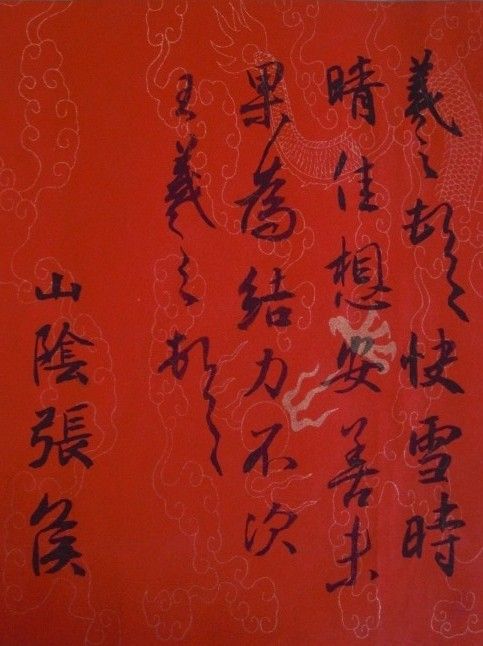 羲之頓首快雪時
晴佳想安善未
果為結力不次
王羲之頓首
山陰張侯